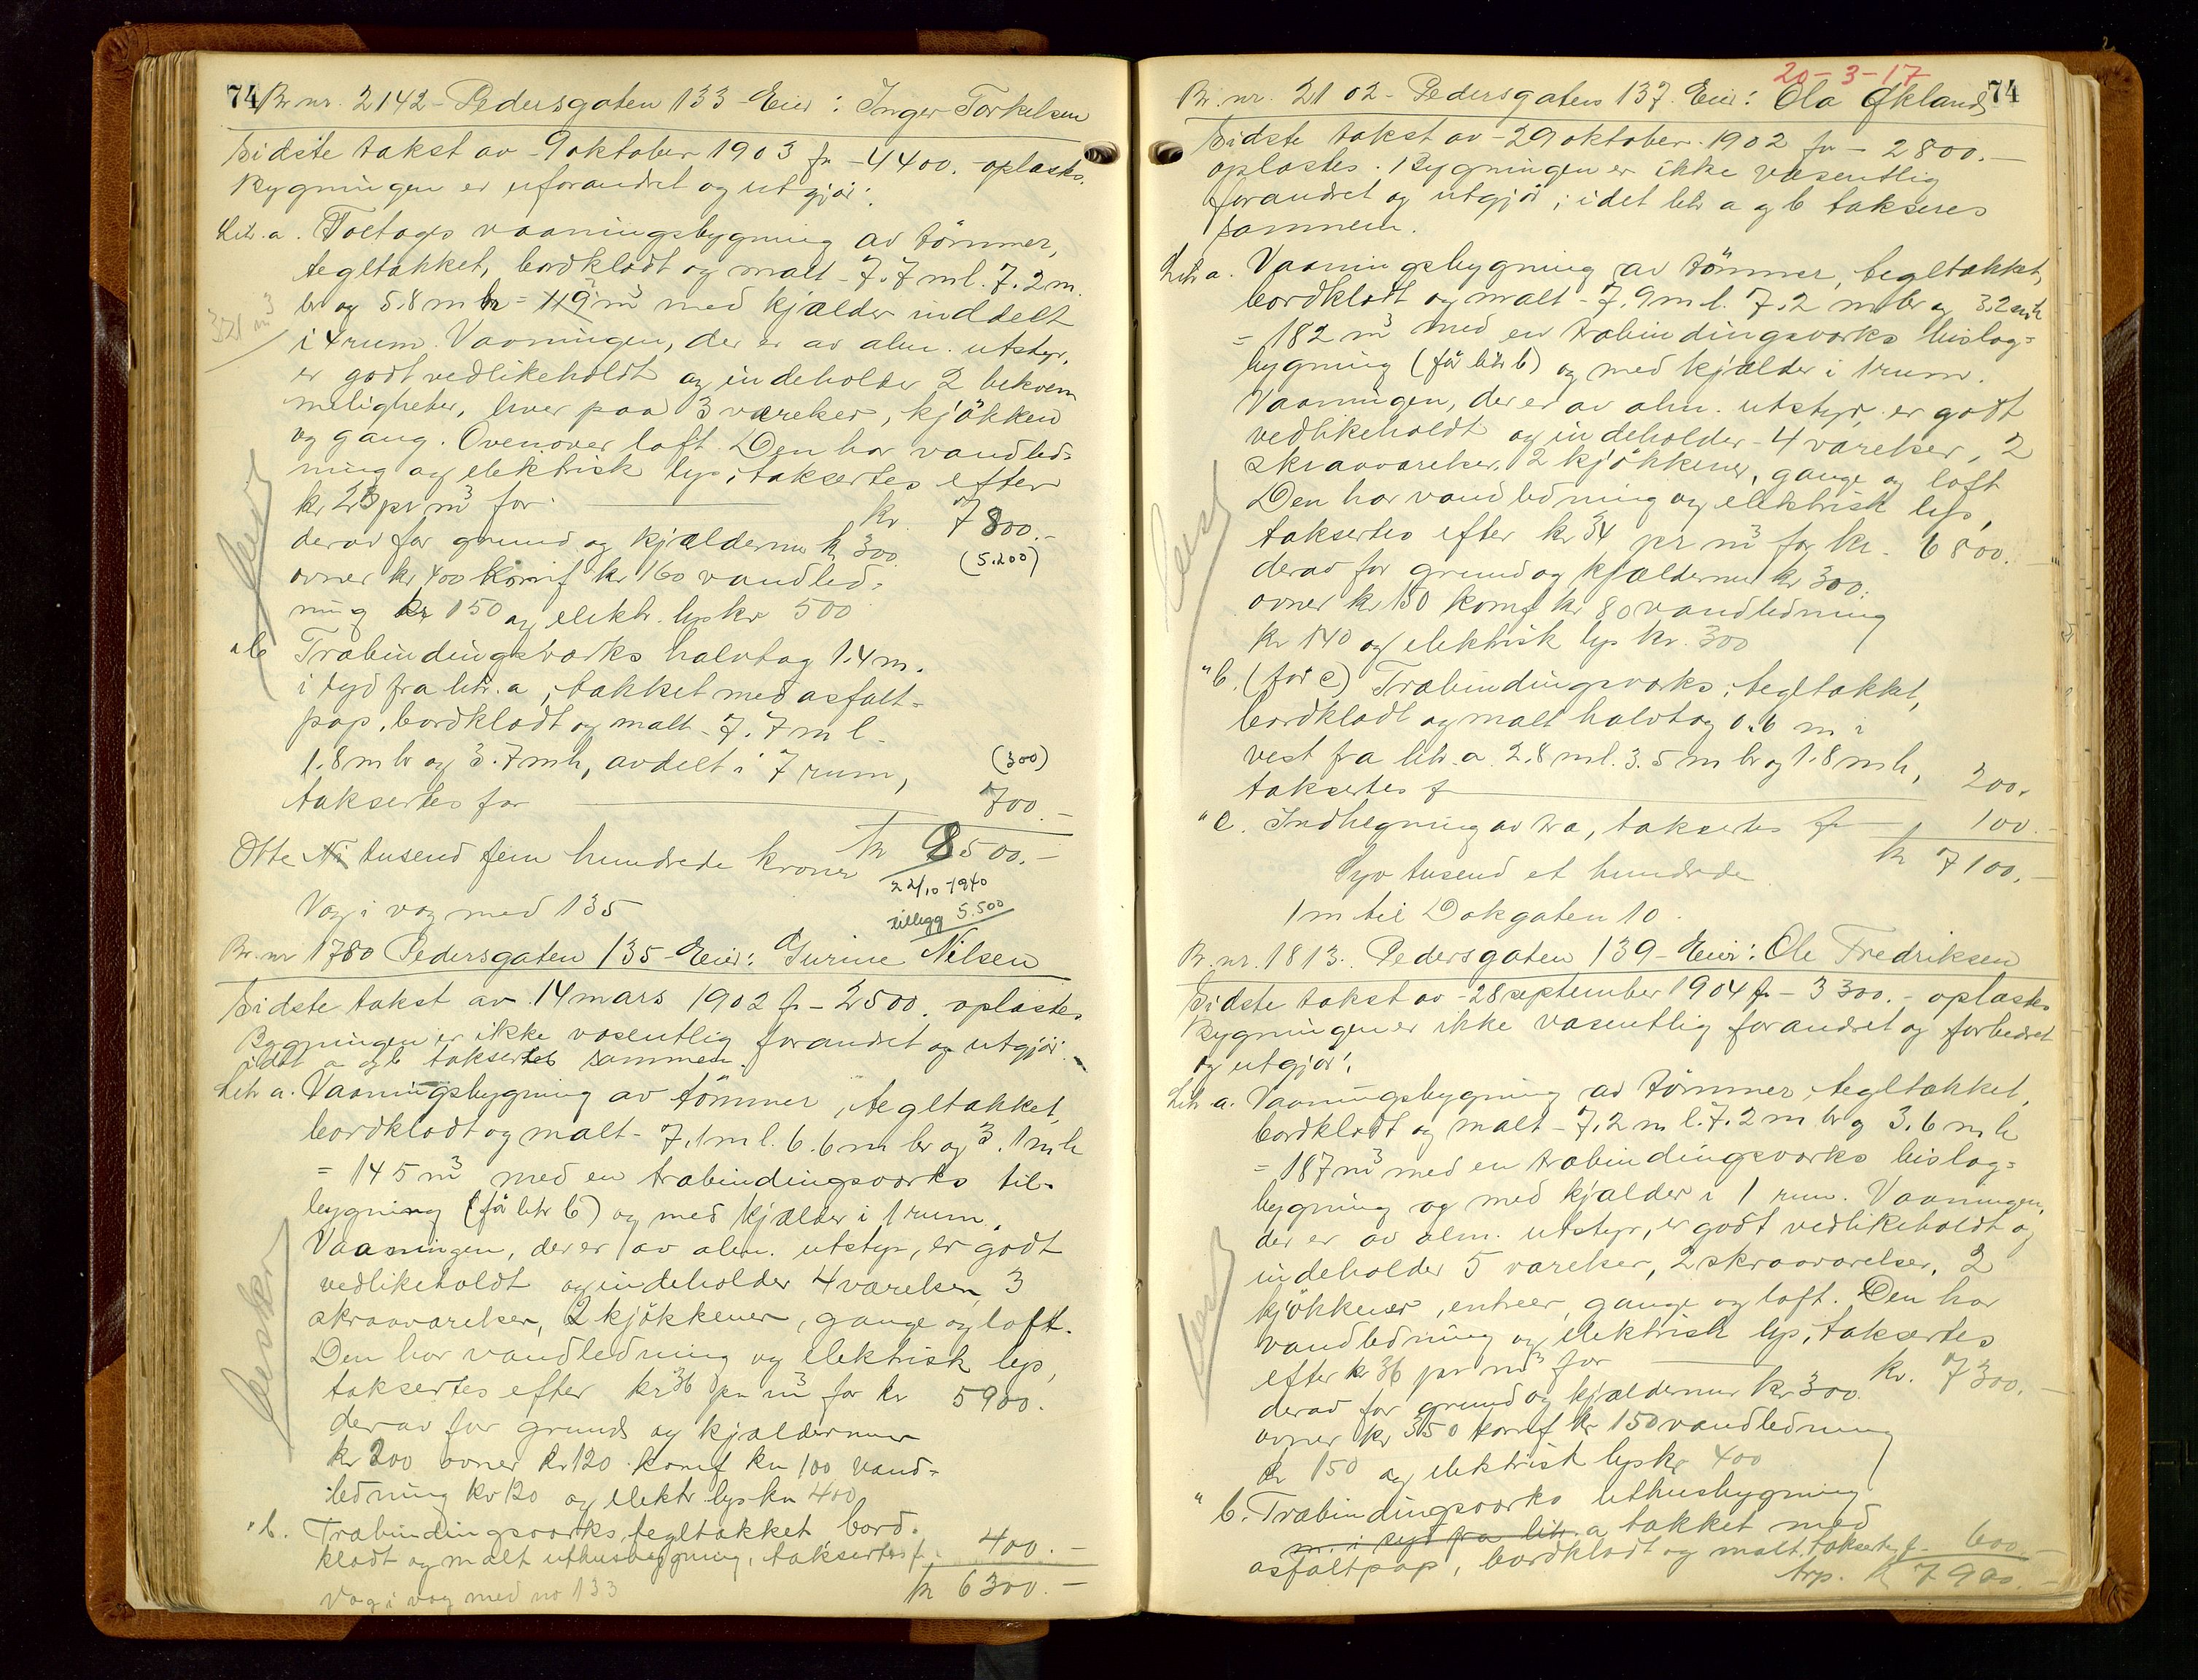 74 Br. nr. 2142 - Pedersgaten 133 - Eier: Inger Torkelsen
Sidste takst av - 9 oktober 1903 fr - 4400. - oplæstes.
Bygningen er uforandret og utgjør:
Litr. a. Toetages vaaningsbygning av tömmer,
tegltækket, bordklædt og malt - 7.7 m l. 7.2 m.
br og 5.8 m h = 119 m3 med kjælder inddelt
321 m3
i 4 rum. Vaaningen, der er av alm. utstyr,
er godt vedlikeholdt og indeholder 2 bekvem
meligheter, hver paa 3 værelser, kjökken
og gang. Ovenover loft. Den har vandled-
ning og elektrisk lys; taksertes efter
kr 23 pr m3 for kr. 7800.-
derav for grund og kjældermur kr 300. (5.200)
ovner kr 400 komf kr 160 vandled-
ning kr 150 og elektr. lys kr 500
" b Træbindingsværks halvtag 1.4 m.
i syd fra litr. a, tækket med asfalt-
pap, bordklædt og malt - 7.7 m l -
1.8 m br og 3.7 m h, avdelt i 7 rum, (300)
taksertes for 700.-
Otte Ni tusend fem hundrede kroner kr 8500.-
22/10-1940
Væg i væg med 135 tillegg 5.500
Br. nr 1780 Pedersgaten 135 - Eier: Gurine Nilsen
Sidste takst av 14 mars 1902 fr - 2500. oplæstes
Bygningen er ikke væsentlig forandret og utgjør:
idet a og b taksertes sammen.
Litr a. Vaaningsbygning av tömmer, tegltækket,
bordklædt og malt - 7.1 m l. 6.6 m br og 3.1 m h
= 145 m3 med en træbindingsværks til-
bygning (för litr b) og med kjælder i 1 rum.
Vaaningen, der er av alm. utstyr, er godt
vedlikeholdt og indeholder 4 værelser, 3
skraaværelser, 2 kjökkener, gange og loft.
Den har vandledning og elektrisk lys,
taksertes efter kr 36 pr m3 for kr 5900.
derav for grund og kjældermur
kr 200 ovner kr 120 komf kr 100 vand-
ledning kr 120 og elektr lys kr 400
" b. Træbindingsværks tegltækket bord-
klædt og malt uthusbygning, taksertes f. 400.-
Væg i væg med no 133 kr 6300.-
20-3-17
Br. nr. 2102 - Pedersgaten 137. Eier: Ola Økland 74
Sidste takst av - 29 oktober 1902 fr - 2800.-
oplæstes. Bygningen er ikke væsentlig
forandret og utgjør; idet litr a og b takseres
sammen.
Litr a. Vaaningsbygning av tömmer, tegltækket,
bordklædt og malt - 7.9 m l. 7.2 m br og 3.2 m h
= 182 m3 med en træbindingsværks bislag-
bygning (för litr b) og med kjælder i 1 rum.
Vaaningen, der er av alm. utstyr, er godt
vedlikeholdt og indeholder - 4 værelser, 2
skraaværelser, 2 kjökkener, gange og loft
Den har vandledning og elektrisk lys,
taksertes efter kr 34 pr m3 for kr. 6800.-
derav for grund og kjældermur kr 300.
ovner kr 150 komf kr 80 vandledning
kr 140 og elektrisk lys kr. 300
" b. (för c) Træbindingsværks, tegltækket,
bordklædt og malt halvtag 0.6 m i
vest fra litr. a 2.8 m l. 3.5 m br og 1.8 m h,
taksertes f 200.
" c. Indhegning av træ, taksertes fr 100.-
Syv tusend et hundrede kr 7100.-
1 m til Dokgaten 10.
Br. nr. 1813. Pedersgaten 139 - Eier: Ole Fredriksen
Sidste takst av - 28 september 1904 fr - 3300.- oplæstes
Bygningen er ikke væsentlig forandret og forbedret
og utgjør:
Litr a. Vaaningsbygning av tömmer, tegltækket,
bordklædt og malt - 7.2 m l. 7.2 m br og 3.6 m h
= 187 m3 med en træbindingsværks bislag-
bygning og med kjælder i 1 rum. Vaaningen,
der er av alm. utstyr, er godt vedlikeholdt og
indeholder 5 værelser, 2 skraaværelser, 2
kjökkener, entreer, gange og loft. Den har
vandledning og elektrisk lys, taksertes
efter kr 36 pr m3 for kr. 7300.-
derav for grund og kjældermur kr 300.
ovner kr 350 komf kr 150 vandledning
kr 150 og elektrisk lys kr 400
" b. Træbindingsværks uthusbygning
m. i syd fra litr. a tækket med
asfaltpap, bordklædt og malt, taksertes f. 600.-
Trp. kr 7900.-